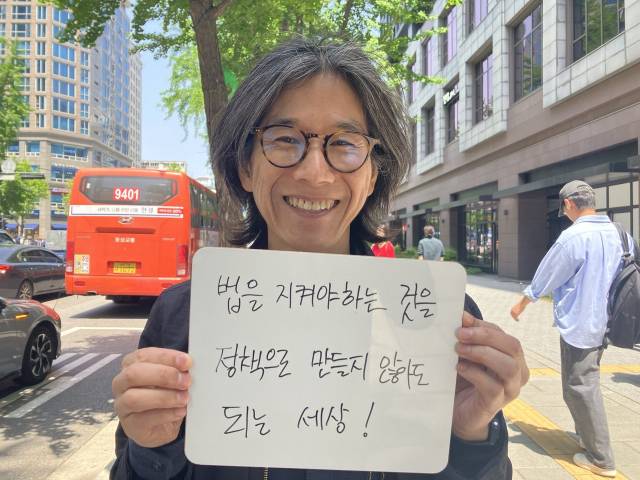 9401
법을 지켜야하는 것을
정책으로 만들지 않아도
되는 세상!